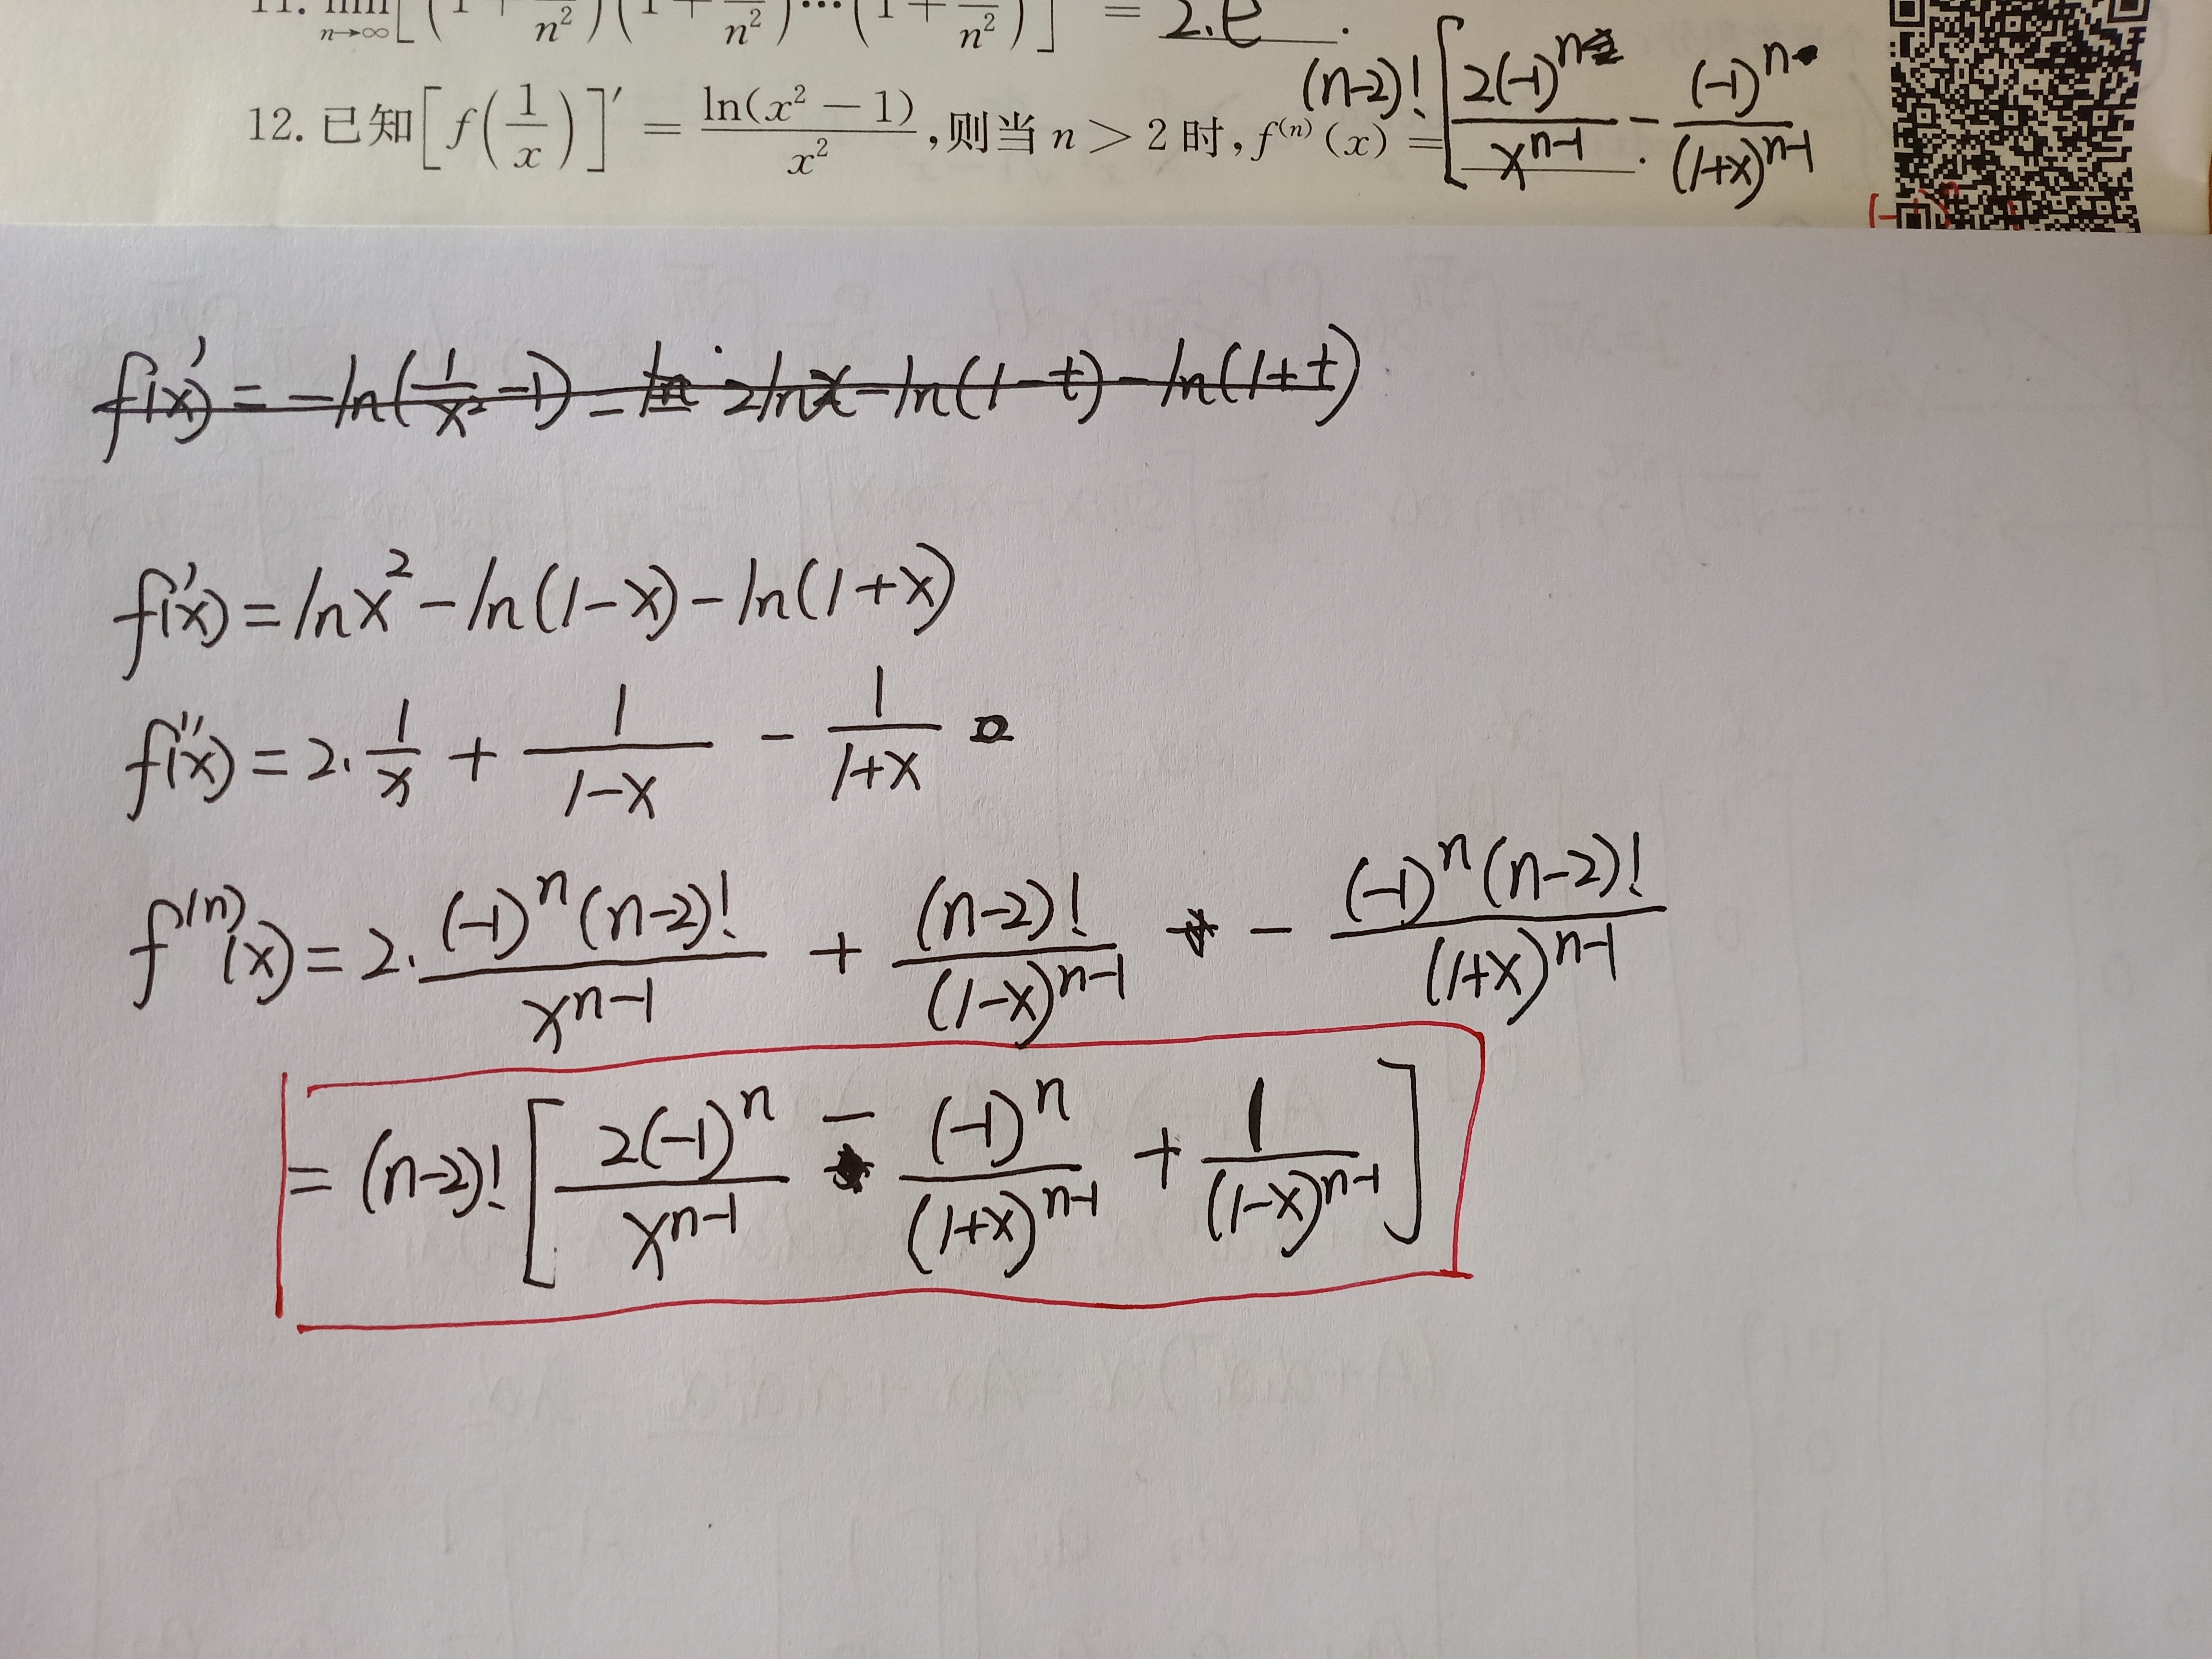 11. lim n→∞ [(1 + n²)(1 + n²)···(1 + n²)] = 2.e.
12. 已知[f(1/x)]′ = ln(x² − 1)/x², 则当 n > 2 时, f⁽ⁿ⁾(x) = (n-2)! [2(-1)ⁿ/xⁿ⁻¹ - (-1)ⁿ/(1+x)ⁿ⁻¹
f'(x) = -ln(1/x² -1) = 2lnx - ln(1-t) - ln(1+t)
f'(x) = lnx² - ln(1-x) - ln(1+x)
f''(x) = 2·1/x + 1/(1-x) - 1/(1+x)
f⁽ⁿ⁾(x) = 2·(-1)ⁿ(n-2)!/xⁿ⁻¹ + (n-2)!/(1-x)ⁿ⁻¹ - (-1)ⁿ(n-2)!/(1+x)ⁿ⁻¹
= (n-2)! [2(-1)ⁿ/xⁿ⁻¹ - (-1)ⁿ/(1+x)ⁿ⁻¹ + 1/(1-x)ⁿ⁻¹]